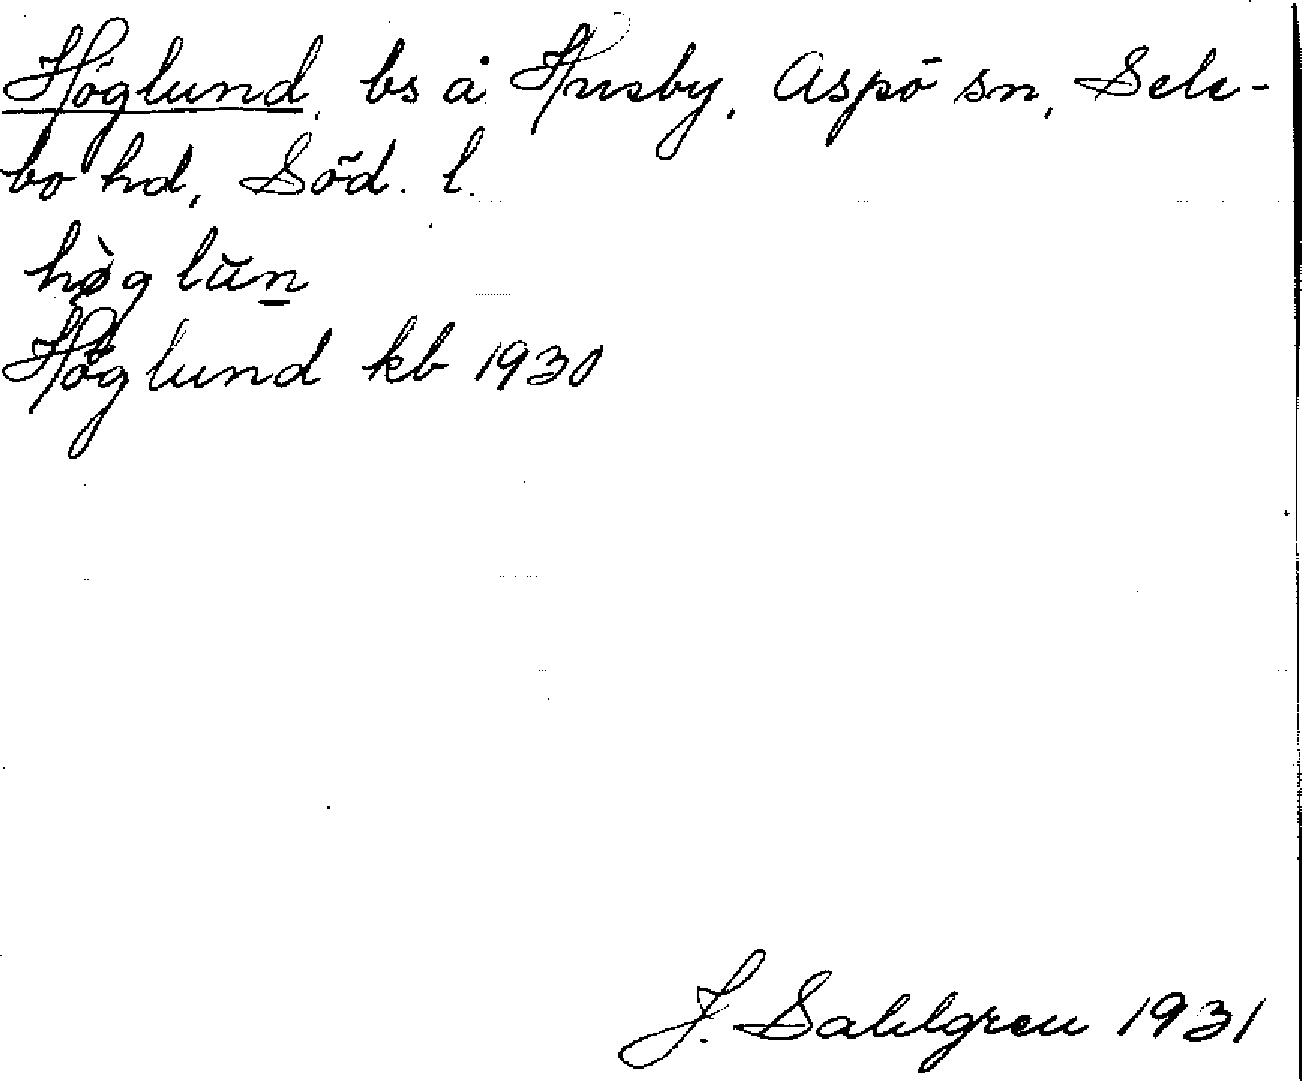 Höglund, bs å Husby, Aspö sn, Sele-
bo hd, Söd. l.
hø̀glŭn̲
Höglund kb 1930
J. Sahlgren 1931